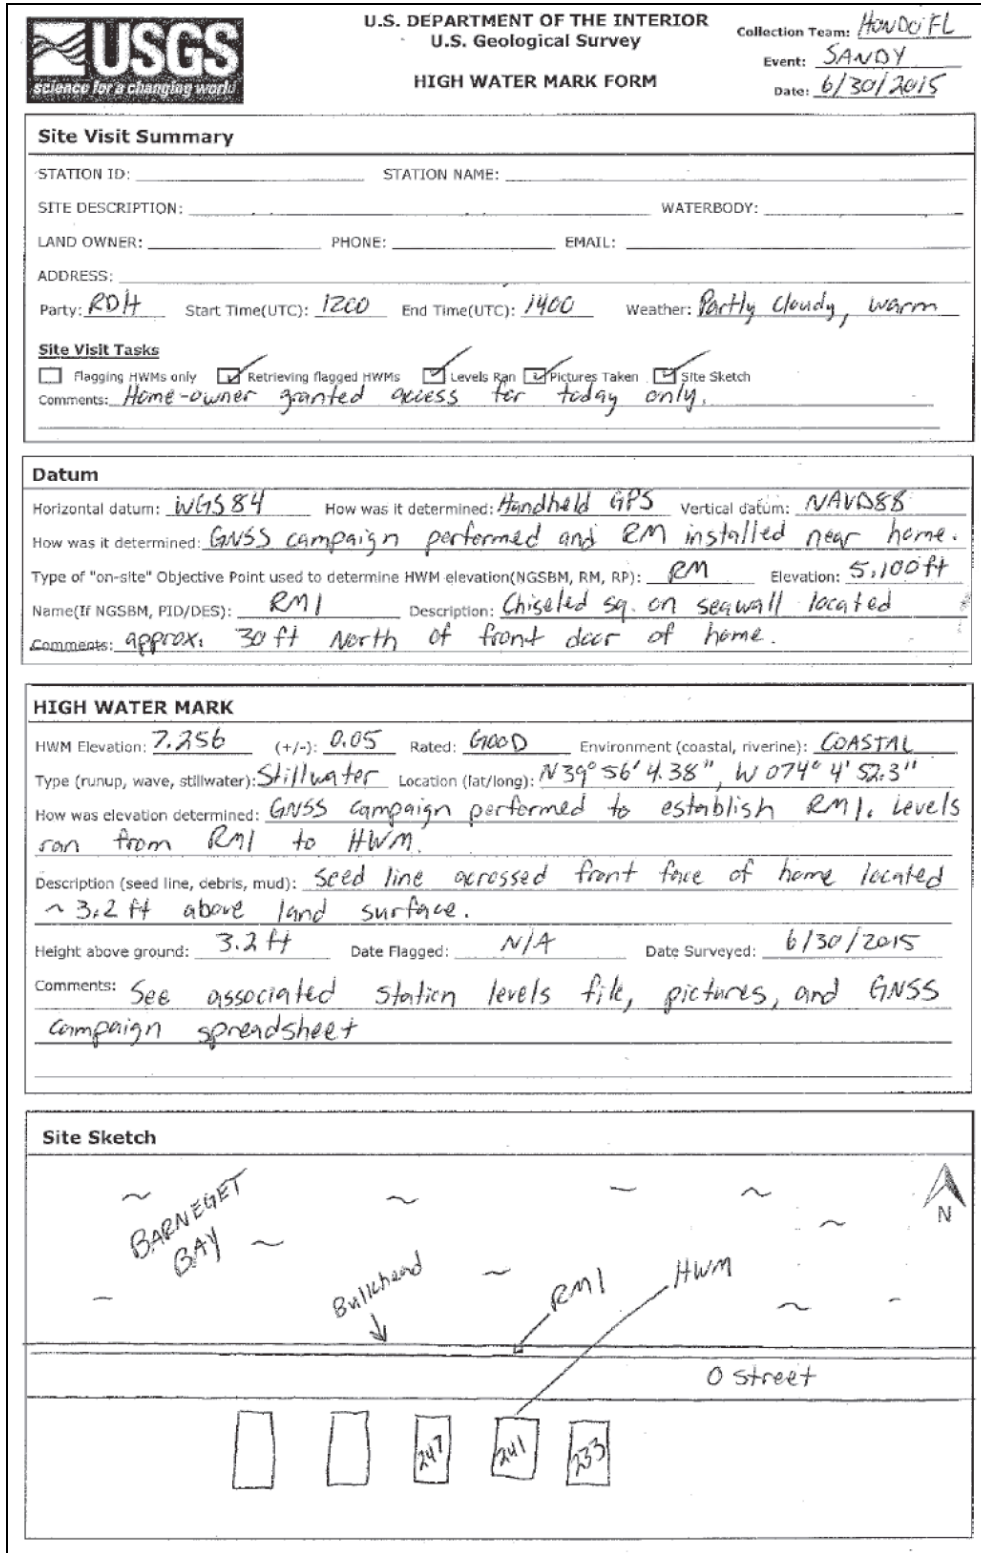 USGS
science for a changing world
U.S. DEPARTMENT OF THE INTERIOR
U.S. Geological Survey
HIGH WATER MARK FORM
Collection Team: HOWDO/FL
Event: SANDY
Date: 6/30/2015
Site Visit Summary
STATION ID: STATION NAME:
SITE DESCRIPTION: WATERBODY:
LAND OWNER: PHONE: EMAIL:
ADDRESS:
Party: RDH Start Time(UTC): 1200 End Time(UTC): 1400 Weather: Partly Cloudy, warm
Site Visit Tasks
Flagging HWMs only Retrieving flagged HWMs Levels Ran Pictures Taken Site Sketch
Comments: Home-owner granted access for today only.
Datum
Horizontal datum: WGS84 How was it determined: Handheld GPS Vertical datum: NAVD88
How was it determined: GNSS campaign performed and RM installed near home.
Type of "on-site" Objective Point used to determine HWM elevation(NGSBM, RM, RP): RM Elevation: 5.100 ft
Name(If NGSBM, PID/DES): RM1 Description: Chiseled sq. on seawall located
Comments: approx. 30 ft North of front door of home.
HIGH WATER MARK
HWM Elevation: 7.256 (+/-): 0.05 Rated: GOOD Environment (coastal, riverine): COASTAL
Type (runup, wave, stillwater): Stillwater Location (lat/long): N 39° 56' 4.38", W 074° 4' 52.3"
How was elevation determined: GNSS campaign performed to establish RM1. Levels
ran from RM1 to HWM.
Description (seed line, debris, mud): Seed line acrossed front face of home located
~ 3.2 ft above land surface.
Height above ground: 3.2 ft Date Flagged: N/A Date Surveyed: 6/30/2015
Comments: See associated station levels file, pictures, and GNSS
campaign spreadsheet
Site Sketch
BARNEGET
BAY
N
Bulkhead
RM1
HWM
O Street
247
241
233